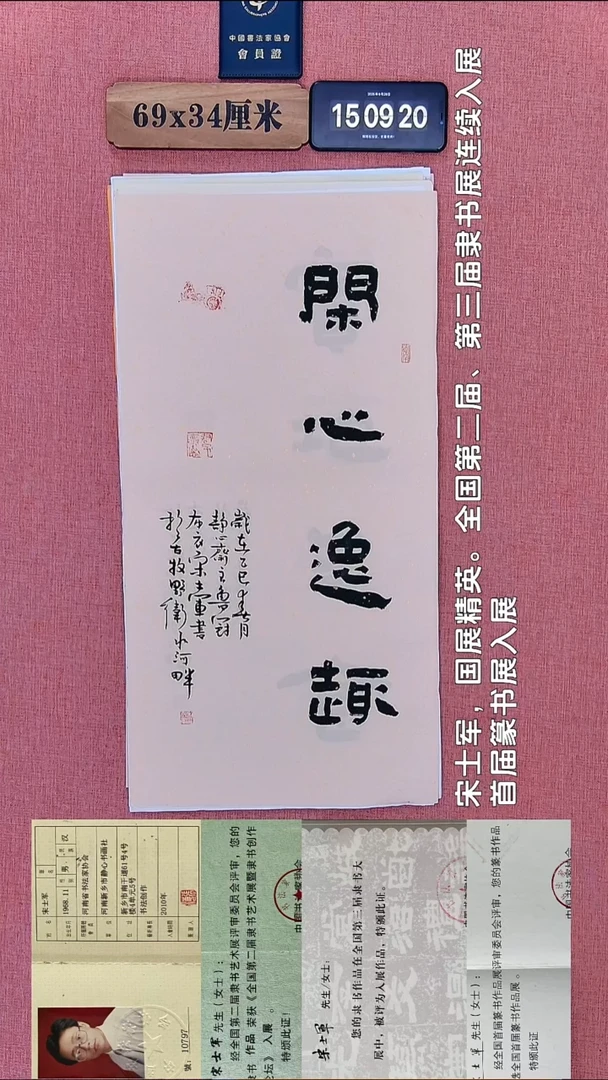 中國書法家協會
會員證
69x34厘米
15 09 20
閑
心
逸
趣
歲在乙巳
宋士軍書
於古牧野衛水河畔
宋士军，国展精英。全国第二届、第三届隶书展连续入展
首届篆书展入展
宋士军
男
汉
1968.11
河南省书法家协会
河南新乡市静心书画社
新乡市南干道61号4号
楼4单元5号
书法创作
2010年
號：10797
宋士军 先生(女士)：
经全国第二届隶书艺术展评审委员会评审，您的
隶书 作品 荣获《全国第二届隶书艺术展暨隶书创作
论坛》 入展 。
特颁此证！
宋士军 先生/女士：
您的隶书作品在全国第三届隶书大
展中，被评为入展作品，特颁此证。
士军 先生(女士)：
经全国首届篆书作品展评审委员会评审，您的篆书作品
全国首届篆书作品展 。
特颁此证